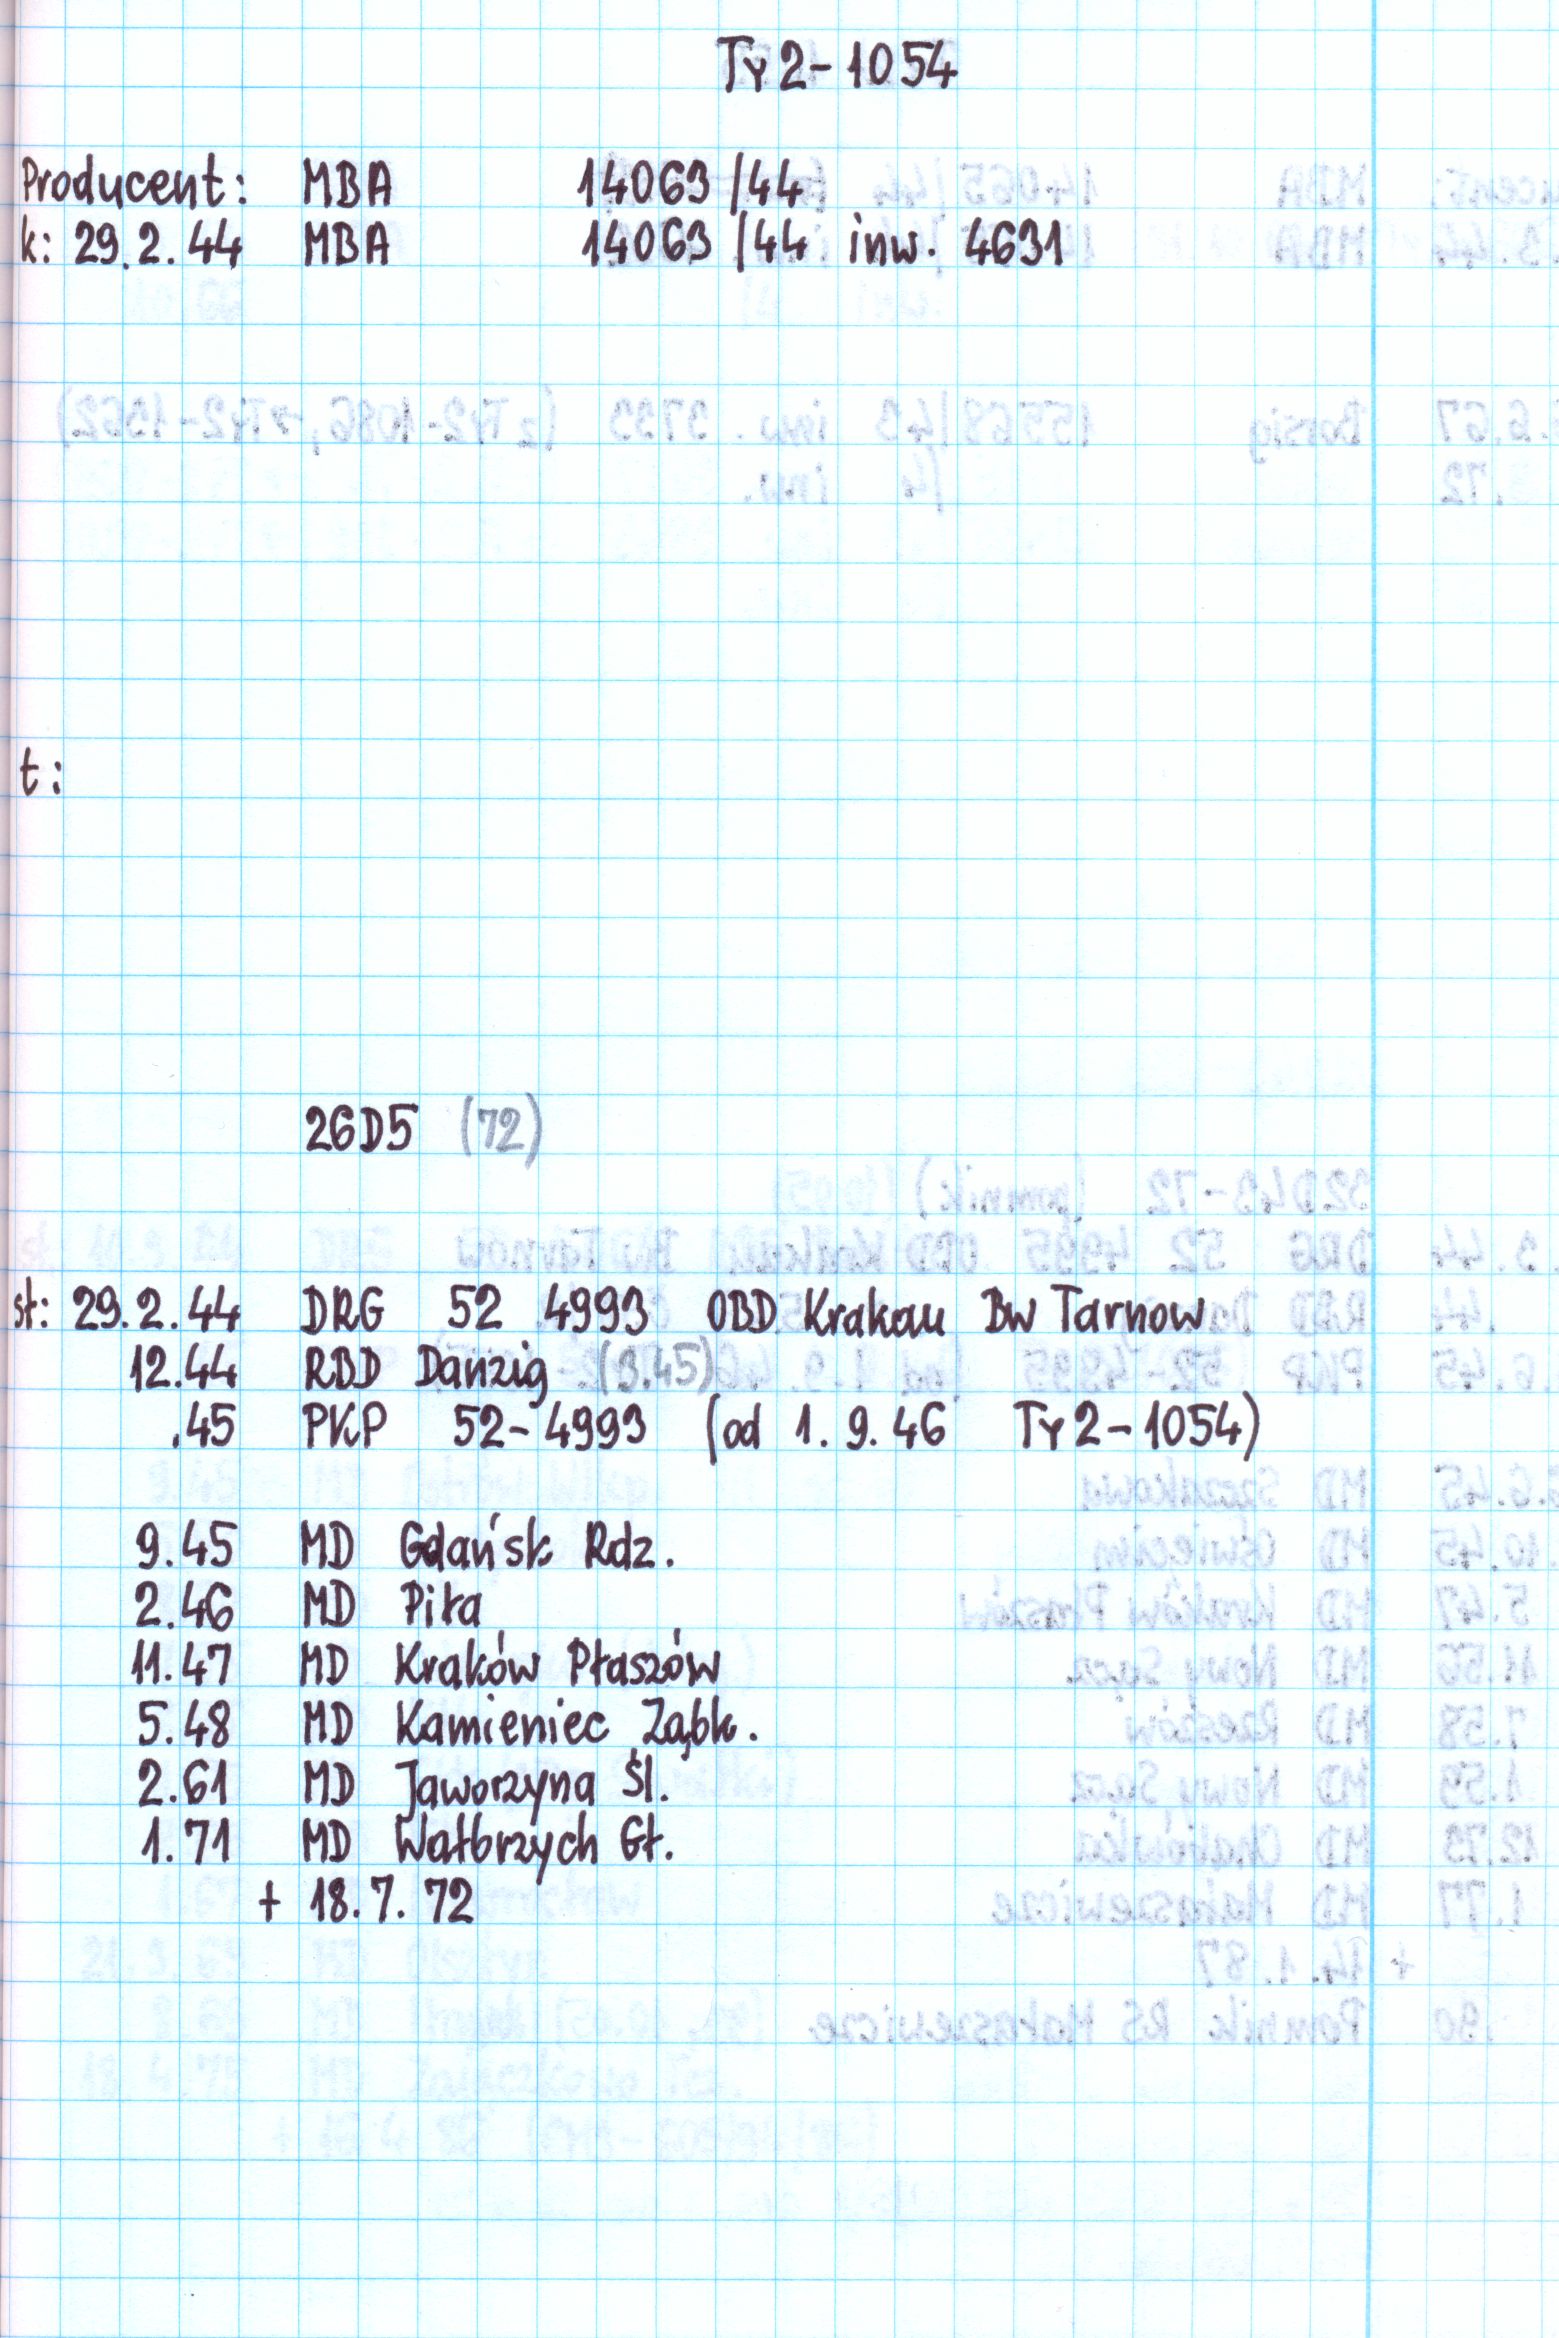 Ty2-1054
Producent: MBA 14063/44
k: 29.2.44 MBA 14063/44 inw. 4631
t:
26D5 (72)
st: 29.2.44 DRG 52 4993 OBD Krakau Bw Tarnow
12.44 RBD Danzig (3.45)
.45 PKP 52-4993 (od 1.9.46 Ty2-1054)
9.45 MD Gdańsk Rdz.
2.46 MD Piła
11.47 MD Kraków Płaszów
5.48 MD Kamieniec Ząbk.
2.61 MD Jaworzyna Śl.
1.71 MD Wałbrzych Gł.
+ 18.7.72